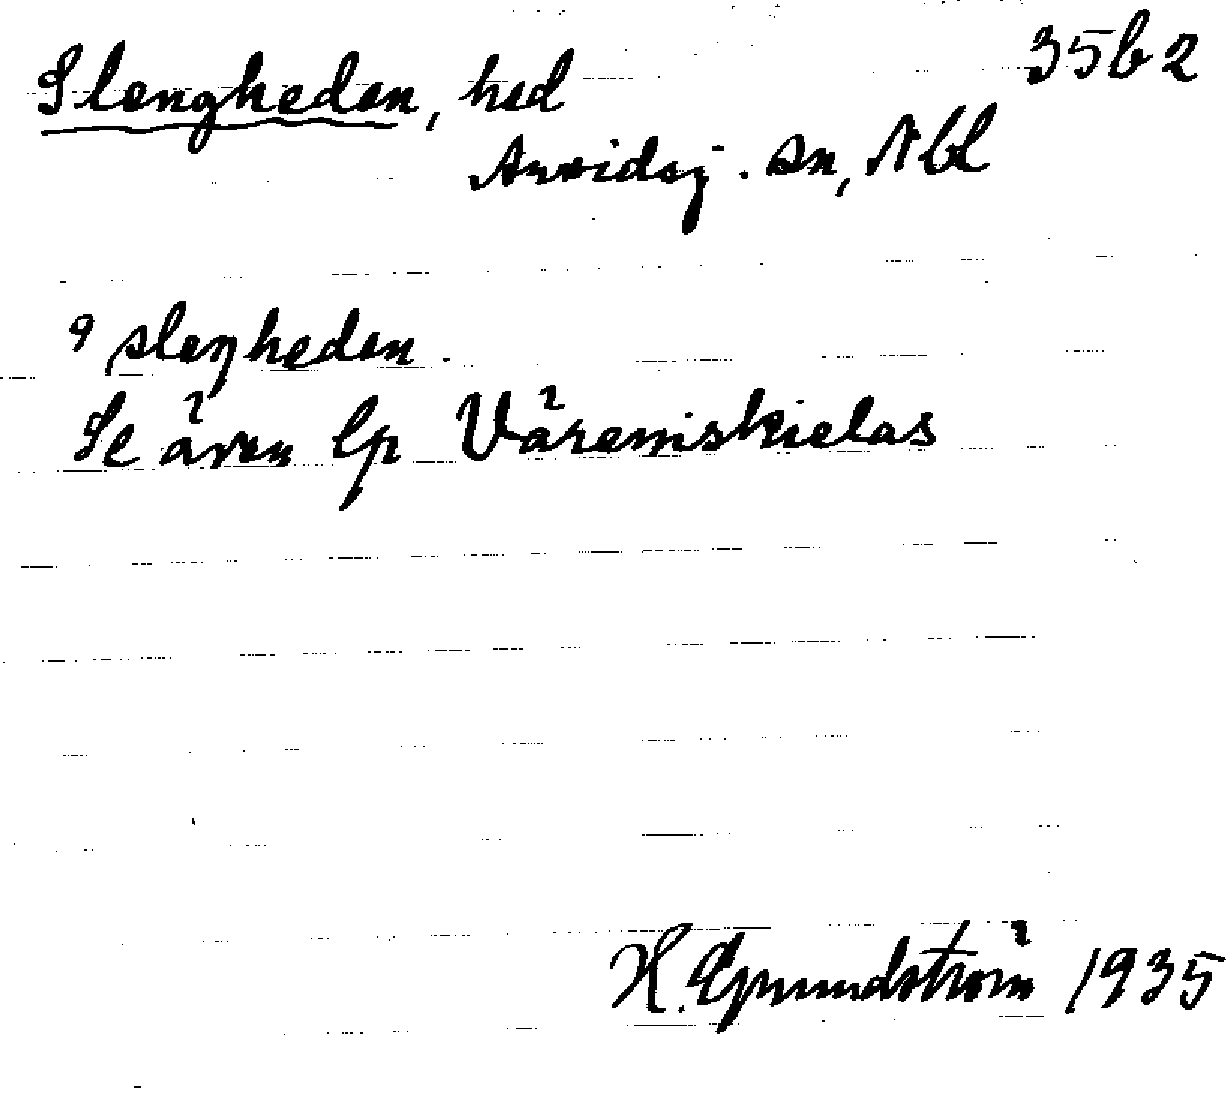 Slengheden, hed 35b2
Arvidsj. sn, Nbl
sleŋhedən.
Se även lp Väremskielas
H. Grundström 1935